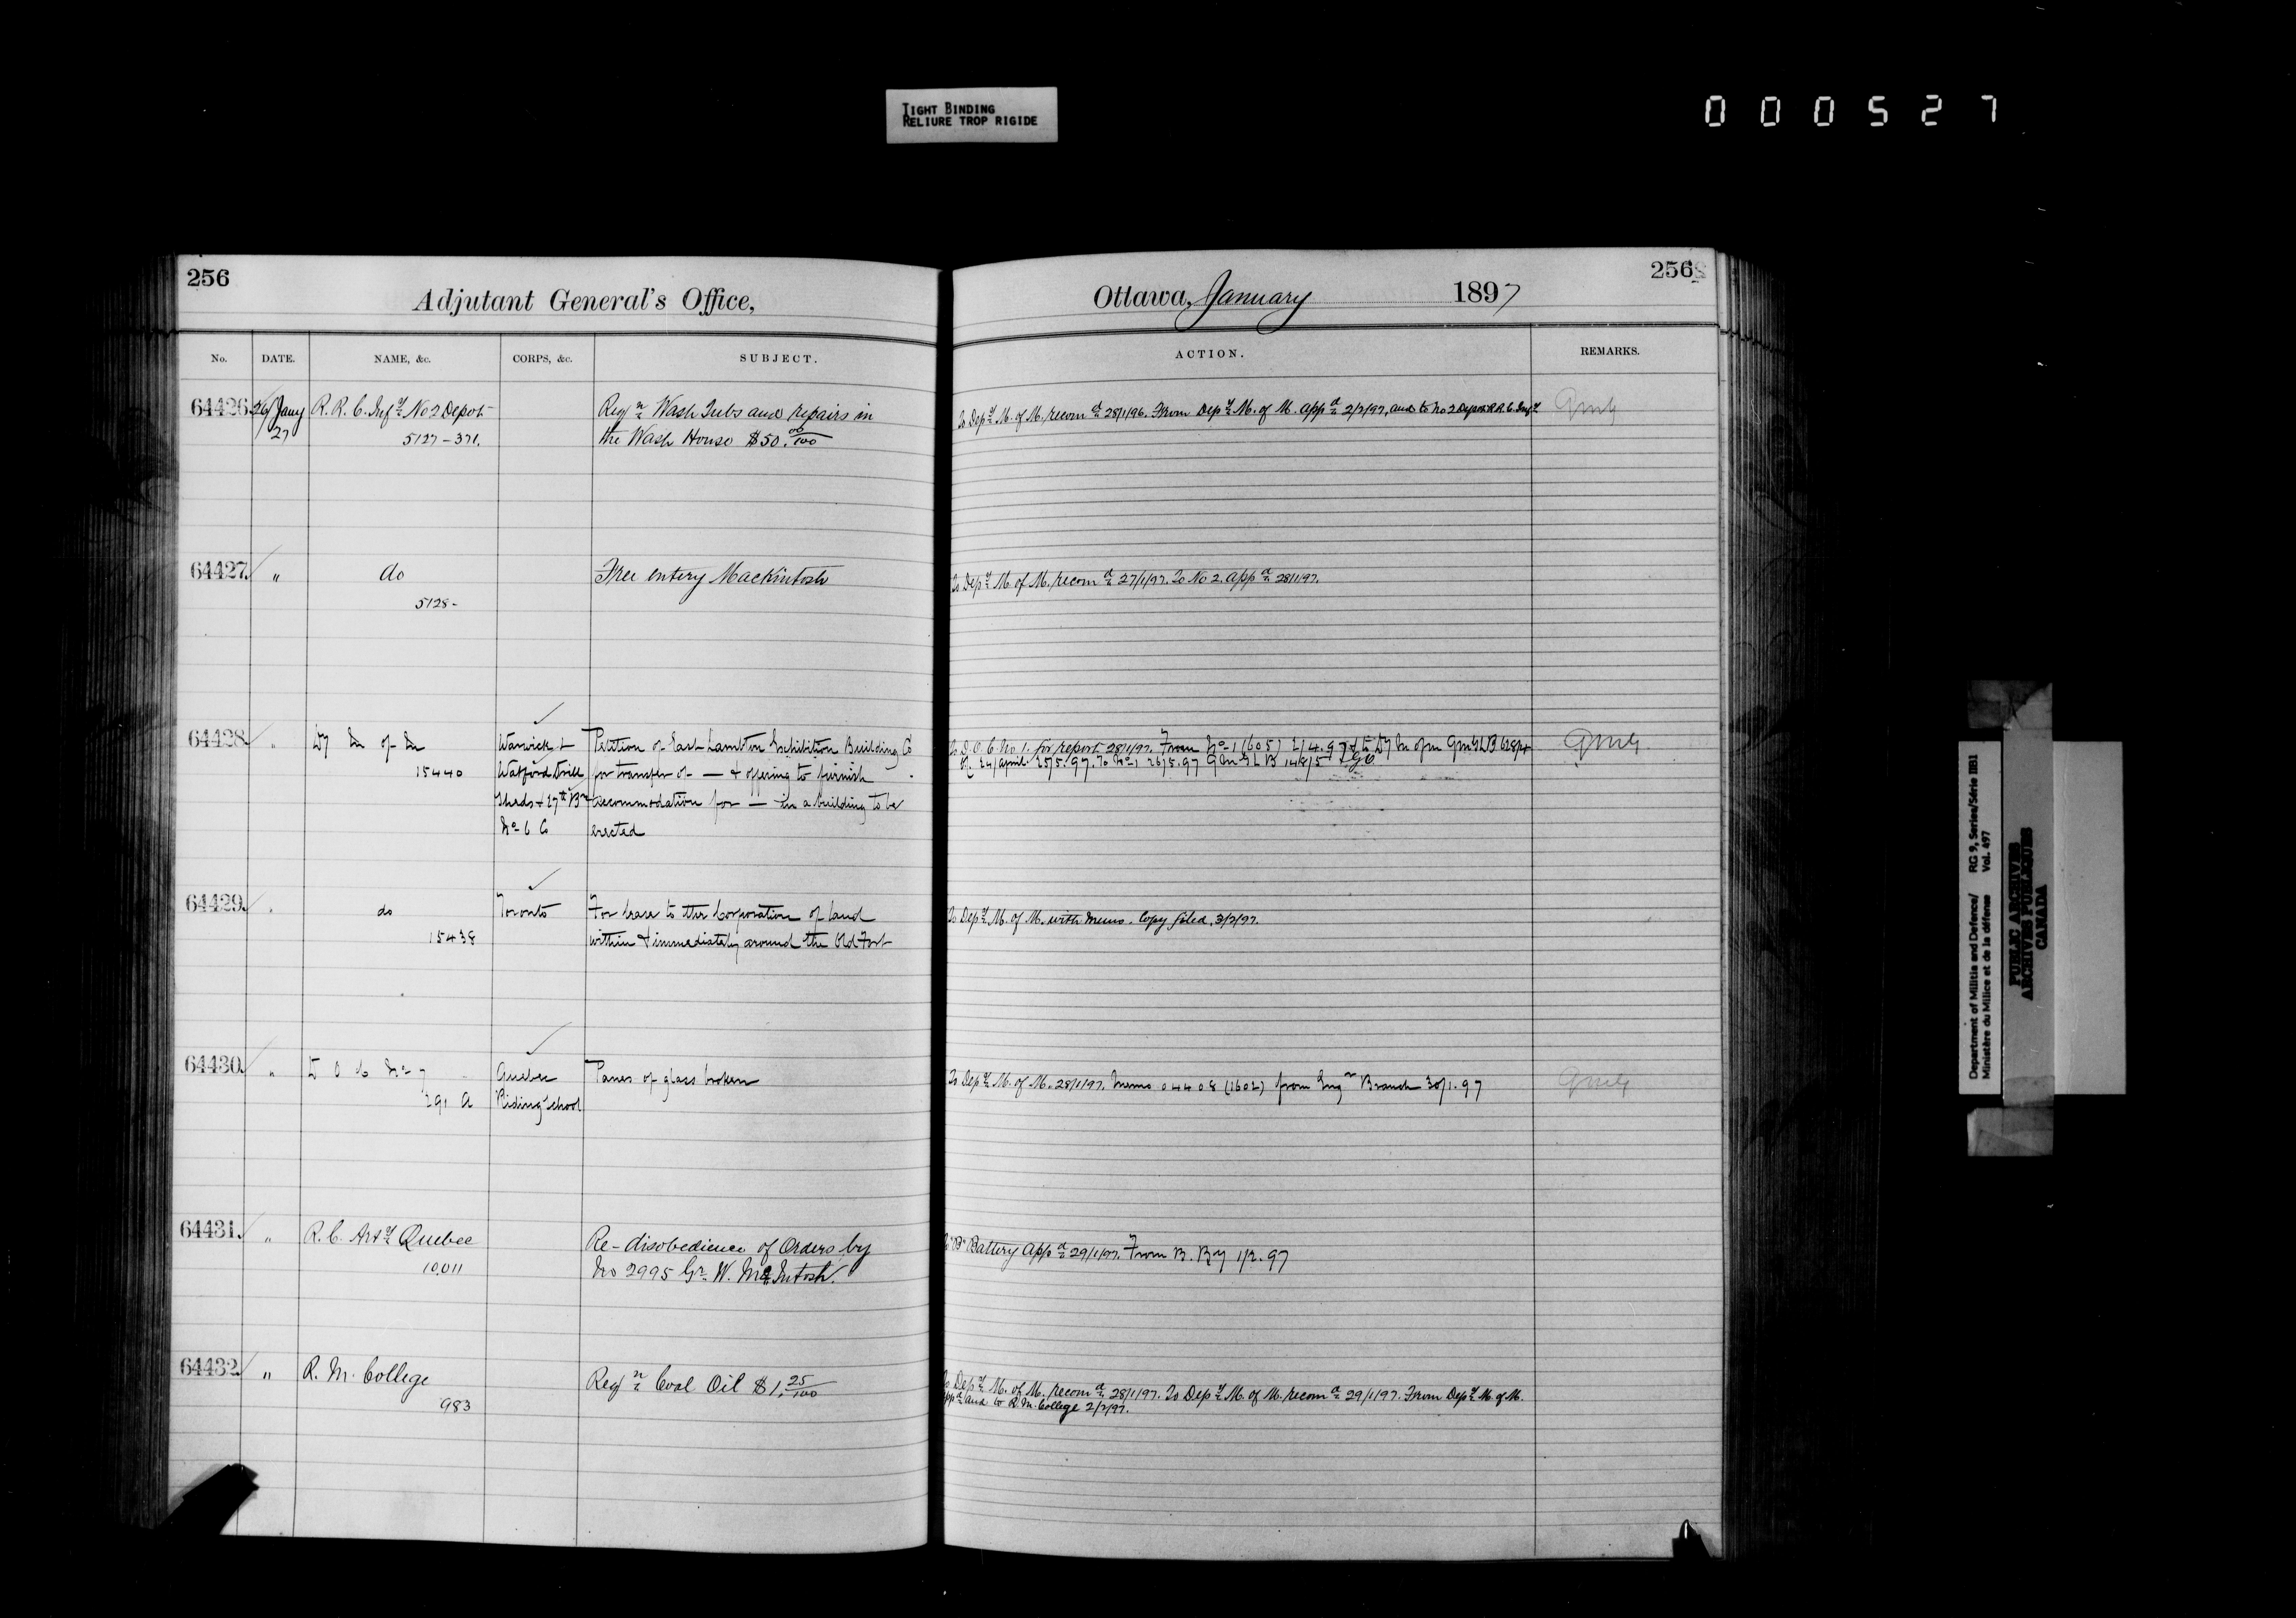 TIGHT BINDING
RELIURE TROP RIGIDE
000527
256
Adjutant General's Office,
No.
DATE.
NAME, &c.
CORPS, &c.
SUBJECT.
64426
26/Jany
27
R. R. C. Infy No 2 Depot
5127-371.
Reqn Wash Tubs and repairs in
the Wash House $50.00/100
64427.
"
do
5128-
Free entery Mackintosh
64428
"
Dy M of M
15440
Warwick &
Watford Drill
Sheds & 27th Bn
No 6 Co
Petition of East Lambton Exhibition Building Co
for transfer of — & offering to furnish
accommodation for — in a building to be
erected
64429.
"
do
15438
Toronto
For lease to the Corporation of land
within & immediately around the Old Fort
64430.
"
D O C No 7
291 A
Quebec
Riding School
Panes of glass broken
64431.
"
R. C. Arty Quebec
10,011
Re-disobedience of Orders by
No 2995 Gr. W. McIntosh.
64432.
"
R. M. College
983
Reqn Coal Oil $1.25/100
Ottawa, January 1897
256
ACTION.
REMARKS.
To Depy M. of M. recomd 28/1/96. From Depy M. of M. appd 2/2/97, and to No 2 Depot R.R.C. Infy
To Depy M. of M. recomd 27/1/97. To No 2. appd 28/1/97.
To D.O.C. No 1. for report 28/1/97. From No 1 (605) 2/4.97 & to Dy M of M QMGLB
of 24/April. 25/5.97. To No 1 26/5.97 QMGLB 148/5
QMG.
To Depy M. of M. with memo. Copy filed. 3/2/97.
To Depy M. of M. 28/1/97. Memo 04408 (1602) from Engr Branch 30/1.97
QMG
To "B" Battery Appd 29/1/97. From B. By 1/2.97
To Depy M. of M. recomd 28/1/97. To Depy M. of M. recomd 29/1/97. From Depy M. of M.
appd and to R.M. College 2/2/97.
Department of Militia and Defence/ RG 9, Series/Série IIB1
Ministère du Milice et de la défense Vol. 497
PUBLIC ARCHIVES
ARCHIVES PUBLIQUES
CANADA